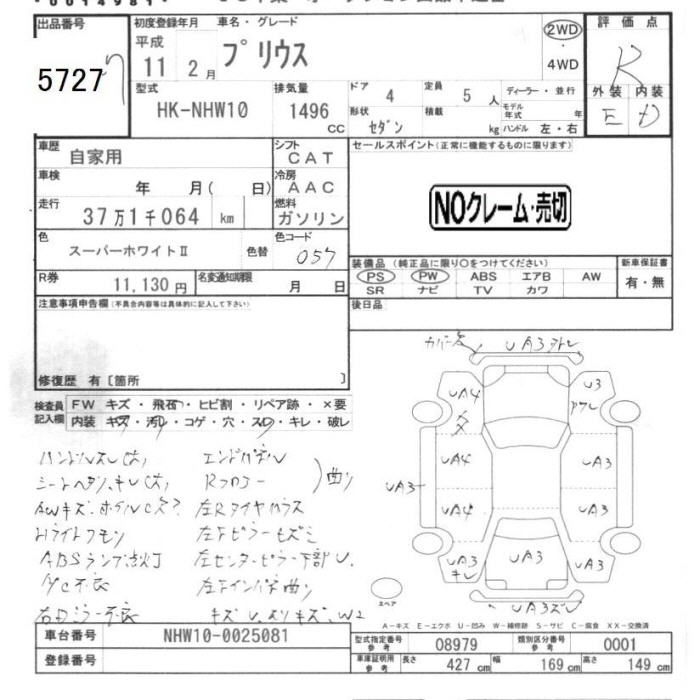 出品番号
5727
初度登録年月
平成
11 2月
車名・グレード
プリウス
2WD
・
4WD
評価点
R
外装 内装
E D
型式
HK-NHW10
排気量
1496
CC
ドア 4
定員 5 人
形状 セダン
積載 kg
ディーラー・並行
モデル年式 年
ハンドル 左・右
車歴
自家用
シフト
CAT
車検
年 月( 日)
冷房
AAC
走行
37万1千064 km
燃料
ガソリン
色
スーパーホワイトⅡ
色替
色コード
057
R券
11,130円
名変通知期限
月 日
セールスポイント(正常に機能するものに限ります)
NOクレーム・売切
装備品 (純正品に限り○をつけてください)
PS PW ABS エアB AW
SR ナビ TV カワ
新車保証書
有・無
後日品
注意事項申告欄(不具合内容等は具体的に記入して下さい)
修復歴 有〔箇所 〕
検査員
記入欄
FW キズ・飛石・ヒビ割・リペア跡・×要
内装 キズ・汚レ・コゲ・穴・スレ・キレ・破レ
ハンドルスレ(大)
エンドパネル
Rフロアー
曲り
Hライトクモリ
ABSランプ点灯
左センターピラー下部U.
A/C不良
キズU.スリキズ.W2
UA3
UA4
U3
UA4
UA3
UA3
UA4
UA3
UA3
キレ
UA3
UA3
UA3キズ
スペア
A-キズ E-エクボ U-凹み W-補修跡 S-サビ C-腐食 XX-交換済
車台番号
NHW10-0025081
登録番号
型式指定番号
参考
08979
類別区分番号
参考
0001
車庫証明用
参考
長さ 427 cm
幅 169 cm
高さ 149 cm